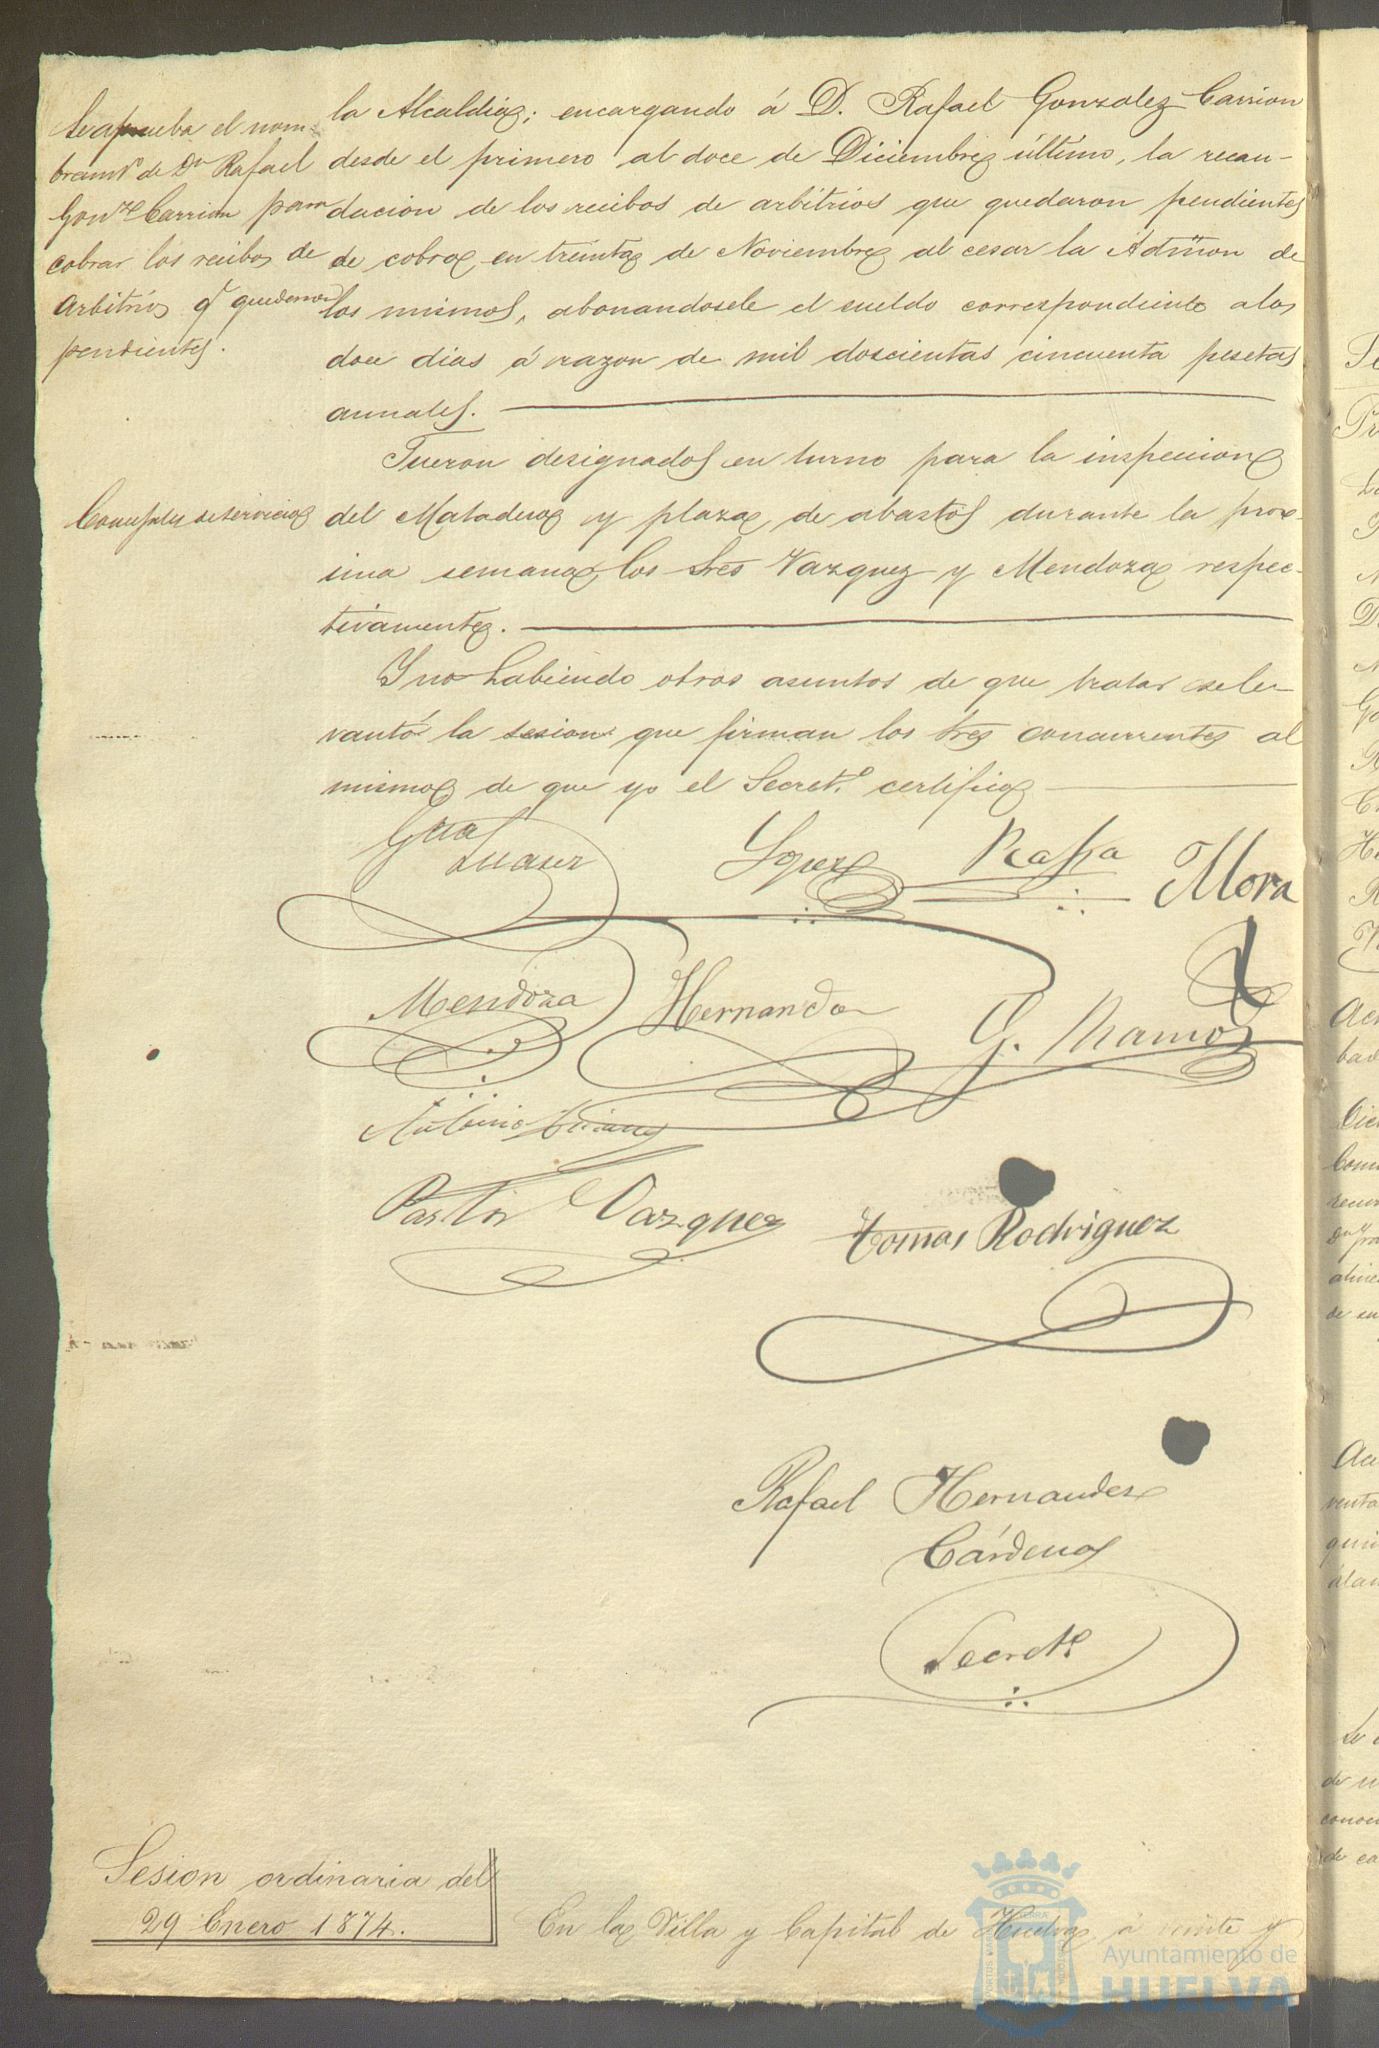 Se aprueba el nom-
bram.to de Dn Rafael
Gonz.z Carrion para
cobrar los recibos de
Arbitrios q. quedaron
pendientes.
la Alcaldia; encargando á D. Rafael Gonzalez Carrion
desde el primero al doce de Diciembre último, la recau-
dacion de los recibos de arbitrios que quedaron pendientes
de cobro en treinta de Noviembre al cesar la Admon de
los mismos, abonandosele el sueldo correspondiente a los
doce dias á razon de mil doscientas cincuenta pesetas
anuales.
Fueron designados en turno para la inspeccion
de servicio
del Matadero y plaza de abastos durante la proc-
sima semana, los Sres Vazquez y Mendoza respec-
tivamente.
Y no habiendo otros asuntos de que tratar se le-
vantó la sesion que firman los Sres concurrentes al
mismo de que yo el Secret.o certifico
Lopez Rafa Mora
Mendoza Hernando G. Ramos
Antonio
Pastor Vazquez Tomas Rodriguez
Rafael Hernandez
Cárdenas
Secret.o
Sesion ordinaria del
29 Enero 1874.
En la Villa y Capital de Huelva á veinte y
Ayuntamiento de
HUELVA